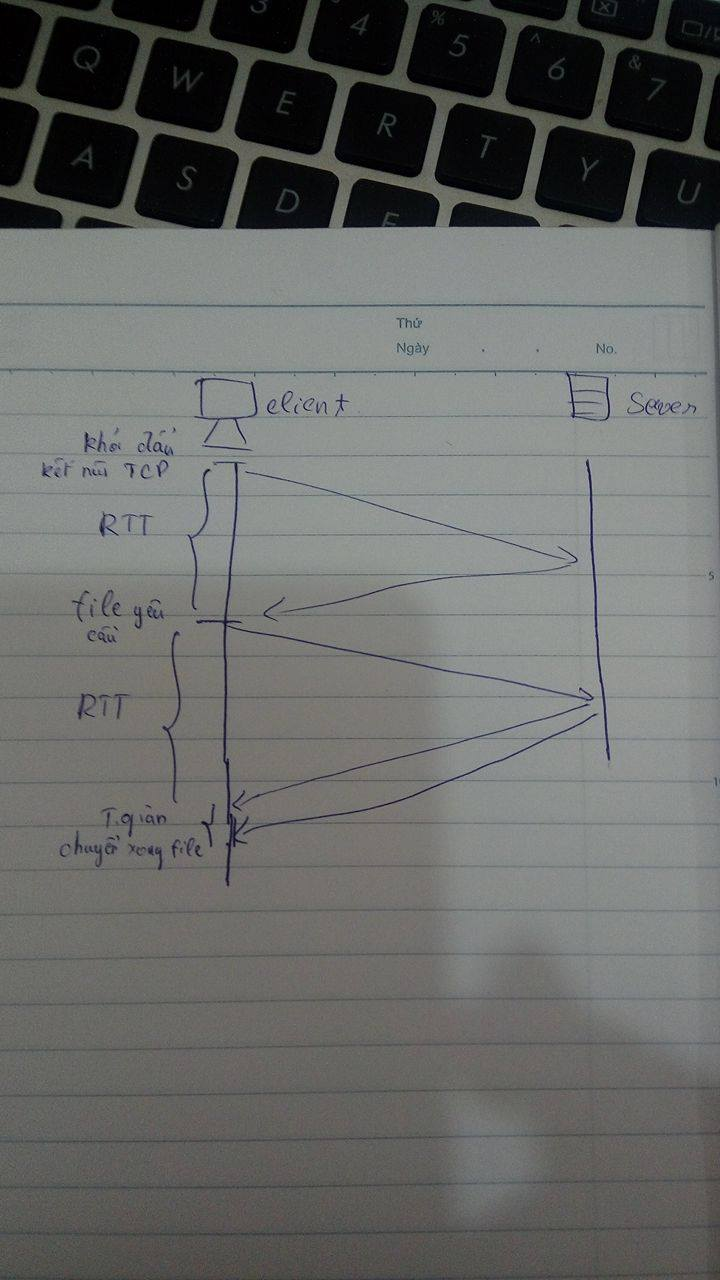 3 4 % 5 ^ 6 & 7
Q W E R T Y U
A S D F
Thứ
Ngày . . No.
client
Sever
khởi đầu
kết nối TCP
RTT
file yêu
cầu
RTT
T.gian
chuyển xong file
5